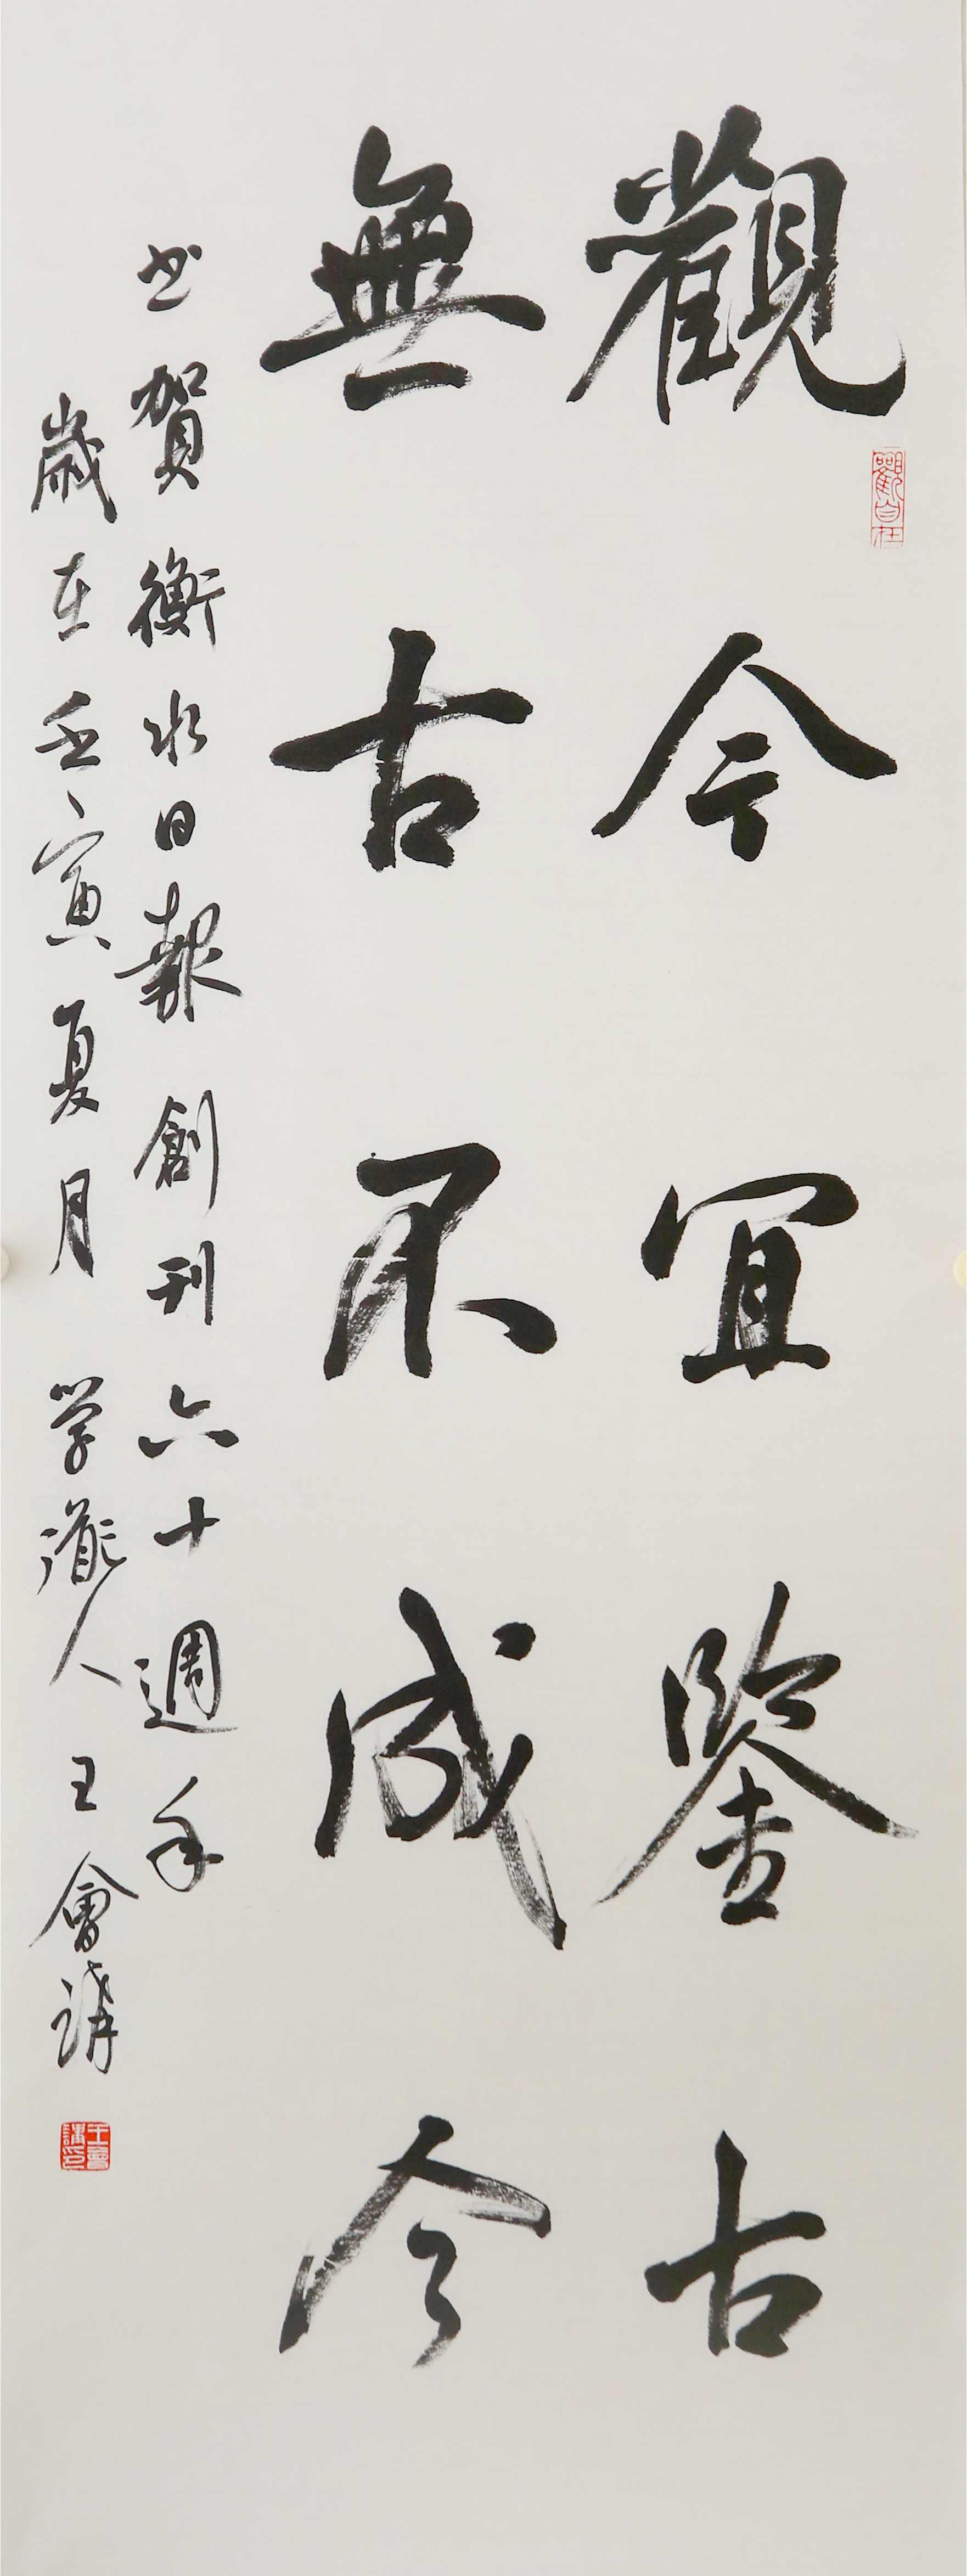 觀今宜鑒古
無古不成今
书賀衡水日報創刊六十週年
歲在壬寅夏月 学道人王會講
觀自在
王會講印